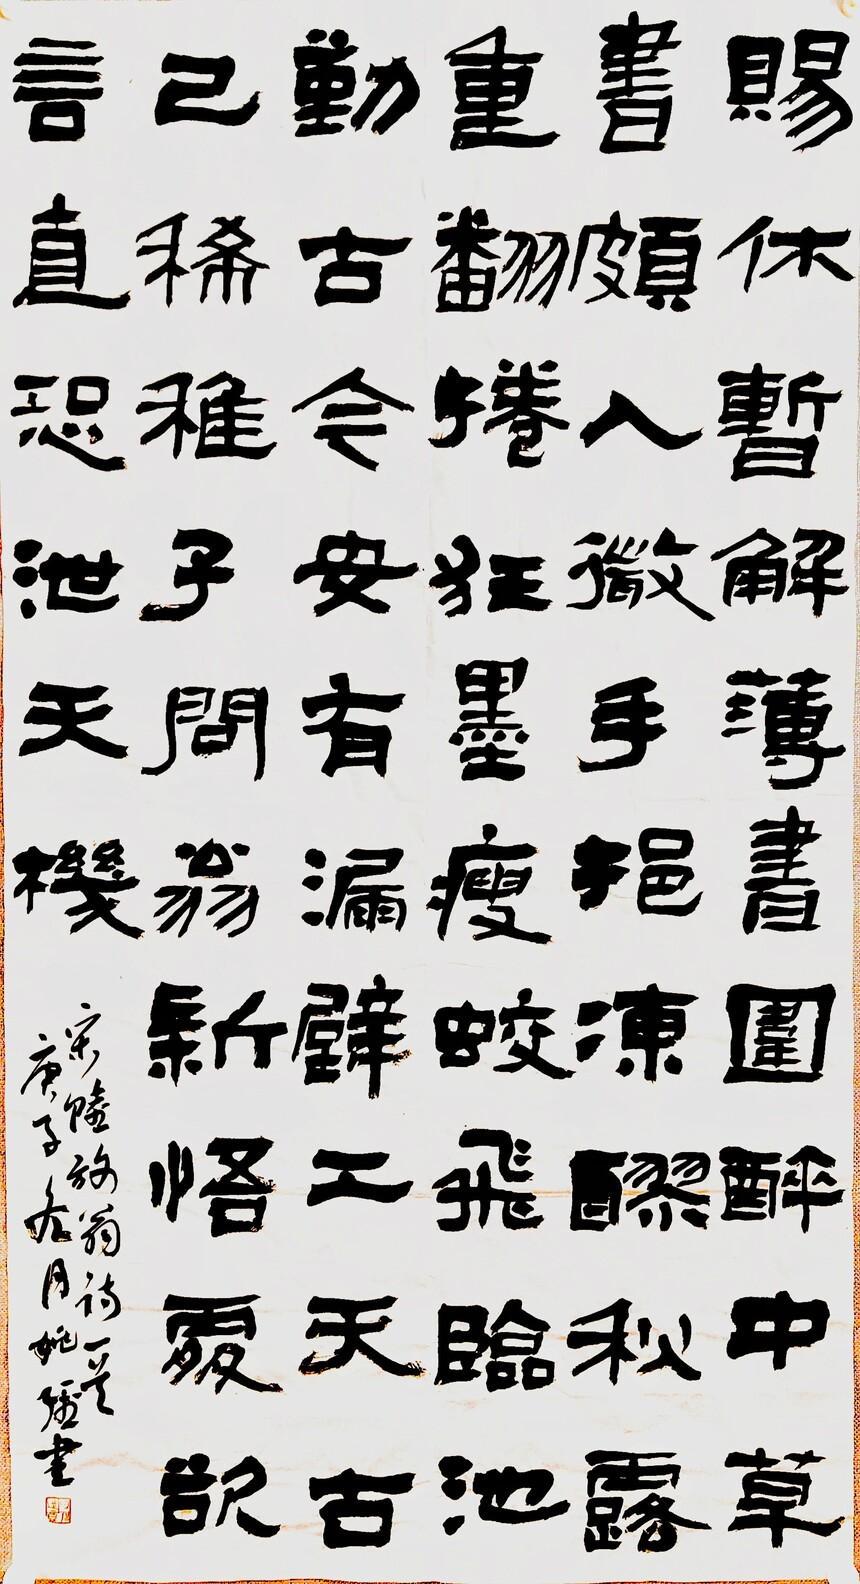 賜休暫解薄書圍醉中草
書頗入微手挹凍醪秋露
重翻捲狂墨瘦蛟飛臨池
勤古今安有漏壁工天古
己稀稚子問翁新悟處欲
言直恐泄天機
宋陸放翁詩一首
庚子冬月姚書